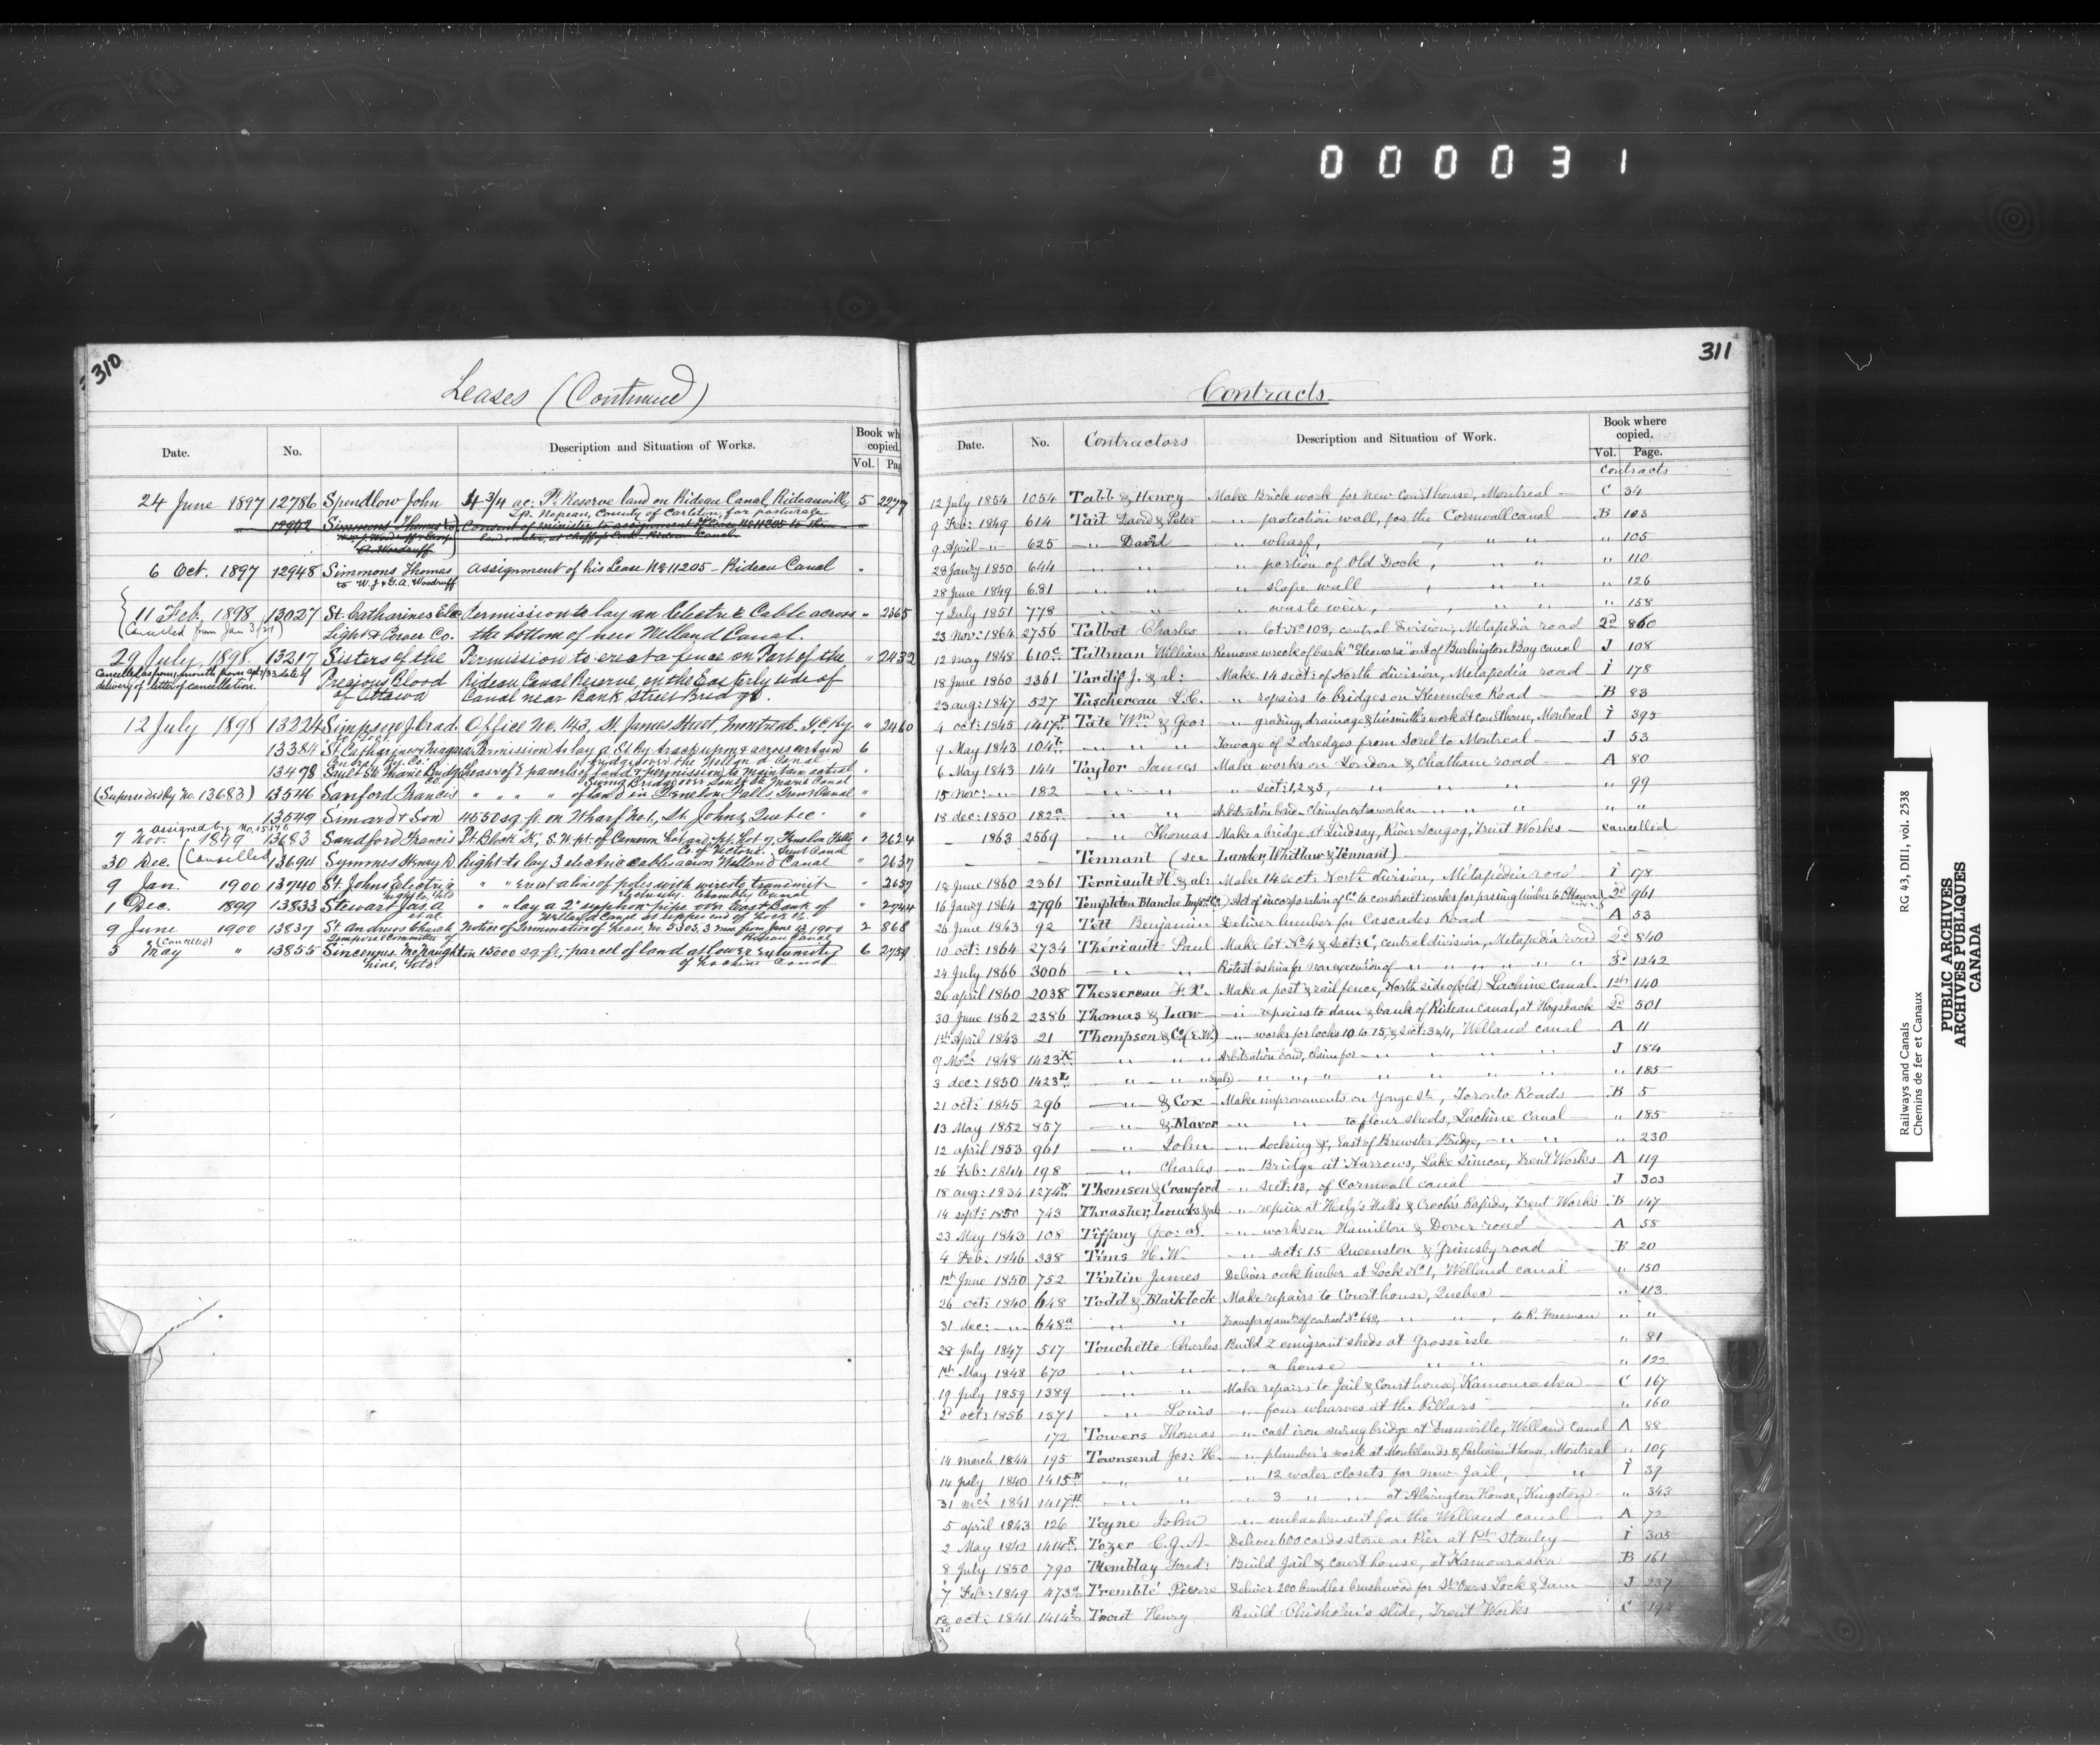 000031
310
Leases (Continued)
Date. No. Description and Situation of Works. Book wh copied.
Vol. Pag
24 June 1897 12786 Spendlow John 4 3/4 ac: Pt. Reserve land on Rideau Canal, Rideauville, 5 2277
Tp. Nepean, County of Carleton, for pasturage
" 12942 Simmons Thomas to Consent of Minister to assignment of Lease No 11205 to the
A. Woodruff
6 Oct. 1897 12948 Simmons Thomas assignment of his Lease No 11205 - Rideau Canal "
to W. J. & G. A. Woodruff
11 Feb. 1898 13027 St. Catharines Elec Permission to lay an Electric Cable across " 2365
(Cancelled from Jan 3/21) Light & Power Co. the bottom of new Welland Canal.
29 July, 1898. 13217 Sisters of the Permission to erect a fence on Part of the " 2432
Cancelled as from, month from date of Precious Blood Rideau Canal Reserve, on the Easterly side of
delivery of letter of cancellation. of Ottawa Canal near Bank Street Bridge.
12 July 1898 13224 Simpson J. Brad. Office No. 143, St. James Street, Montreal. G.C. Ry. " 2460
13384 St. Catharines & Niagara Permission to lay a St. Ry. track upon & across certain 6
Central Ry. Co. bridges over the Welland Canal
13478 Sault Ste Marie Bridge Lease of 2 parcels of land & permission to maintain actual "
Co. Swing Bridge over Sault Ste Marie Canal
(Superseded by No. 13683) 13546 Sanford Francis " " " " of land in Fenelon Falls, Trent Canal "
13549 Simard & Son 4550 sq. ft. on Wharf No. 1, St. Johns, Quebec. "
assigned by No. 15176
7 Nov. 1899 13683 Sandford Francis Pt. Block "K", S.W. pt. of Cameron Lot and pt. Lot 9, Fenelon Falls " 2624
Co. of Victoria. Trent Canal
30 Dec. (Cancelled) 13694 Symmes Henry D Right to lay 3 electric cables across Welland Canal " 2637
9 Jan. 1900 13740 St. Johns Electric " " erect a line of poles with wires to transmit " 2657
Light Co., Ltd electricity. Chambly Canal
1 Dec. 1899 13833 Stewart Jas. A " " lay a 2" syphon pipe over East Bank of " 2744
et al. Welland Canal at upper end of Lock
9 June 1900 13837 St. Andrews Church Notice of Termination of Lease, No. 5303, 3 mos. from June 13, 1900 2 868
Temporal Committee of Rideau Canal
(Cancelled)
5 May " 13855 Sincennes McNaughton 15000 sq. ft., parcel of land at lower extremity 6 2759
Line, Ltd. of Lachine Canal
311
Contracts
Date. No. Contractors Description and Situation of Work. Book where copied.
Vol. Page.
Contracts
12 July 1854 1054 Tabb & Henry Make Brick work for New Courthouse, Montreal C 34
9 Feb: 1849 614 Tait David & Peter " protection wall, for the Cornwall canal B 103
9 April " 625 " David " wharf, " " " 105
28 Jan'y 1850 644 " " " portion of Old Dock, " " " 110
28 June 1849 681 " " " slope wall " " " 126
7 July 1851 778 " " " waste weir, " " " 158
23 Nov: 1864 2756 Talbot Charles " lot No 108, central division, Metapedia road 2d 860
12 may 1848 610c Tallman William Remove wreck of bark "Eleonora" out of Burlington Bay canal J 108
18 June 1860 2361 Tardif J. & al: Make 14 sect: of North division, Metapedia road I 178
23 aug: 1847 527 Taschereau L.C. " repairs to Bridges on Kennebec Road B 83
4 oct: 1845 1417P Tate Wm & Geo: " grading, drainage & tinsmith's work at courthouse, Montreal I 393
9 May 1843 104b " " " Towage of 2 dredges from Sorel to Montreal J 53
6 May 1843 144 Taylor James Make works on London & Chatham road A 80
15 Nov: " 182 " " " sect: 1, 2 & 3, " " " " 99
18 dec: 1850 182a " " Arbitration bond - Claim for extra work on " " " " "
1863 2569 " Thomas Make a bridge at Lindsay, River Scugog, Trent Works cancelled
Tennant (see Lauder, Whitlaw & Tennant)
18 June 1860 2361 Terriault H. & al: Make 14 sect: North division, Metapedia road I 178
16 Jan'y 1864 2796 Templeton Blanche Imp't Co. Act of incorporation of Co. to construct works for passing timber to Ottawa 2d 961
26 June 1843 92 Tett Benjamin Deliver lumber for Cascades Road A 53
10 oct: 1864 2734 Thériault Paul Make lot No 4 & sect: C, central division, Metapedia road 2d 840
24 July 1866 3006 " " Protest ag him for non execution of " " " " " " 3d 1242
26 april 1860 2038 Thessereau F.X. Make a post & rail fence, North side of (old) Lachine canal 1st 140
30 June 1862 2386 Thomas & Law " repairs to dam & bank of Rideau Canal, at Hogsback 2d 501
1st April 1843 21 Thompson & Co (E.W.) " works for locks 10 to 15, & sect: 3 & 4, Welland canal A 11
9 Mch 1848 1423K " " " Arbitration bond, claim for " " " " J 184
3 dec: 1850 1423L " " " (& al) " " " " " " " 185
21 oct: 1845 296 " & Cox Make improvements on Yonge St, Toronto Roads B 5
13 May 1852 857 " & Mavor " " to flour sheds, Lachine Canal " 185
12 april 1853 961 " John " docking &c, East of Brewster Bridge, " " " 230
26 Feb: 1844 198 " Charles " Bridge at Narrows, Lake Simcoe, Trent Works A 119
18 aug: 1834 1274N Thomson & Crawford " sect: 13, of Cornwall canal J 303
14 sept: 1850 743 Thrasher, Loucks & al: " repairs at Heely's Falls & Crook's Rapids, Trent Works B 147
23 May 1843 108 Tiffany Geo: S. " works on Hamilton & Dover road A 58
4 Feb: 1846 338 Tims H.W. " sect: 15 Queenston & Grimsby road B 20
1st June 1850 752 Tintin James Deliver oak timber at Lock No 1, Welland canal " 150
26 oct: 1840 648 Todd & Blaiklock Make repairs to Court house, Quebec " 113
31 dec: " 648a " " Transfer of amt of contract No 648, " " , to R. Freeman " "
28 July 1847 517 Touchette Charles Build 2 emigrant sheds at Grosse isle " 81
1st May 1848 670 " " " a house " " " 122
19 July 1859 1389 " " Make repairs to Jail & Courthouse, Kamouraska C 167
2d oct: 1856 1371 " Louis " four wharves at the Pillars " 160
172 Towers Thomas " cast iron swing bridge at Dunnville, Welland Canal A 88
14 march 1844 195 Townsend Jos: H. " plumber's work at Monklands & Parliament house, Montreal " 109
14 july 1840 1415N " " " 12 water closets for new Jail, " I 37
31 mch 1841 1417H " " " 3 " " at Alwington House, Kingston " 343
5 april 1843 126 Toyne John " embankment for the Welland canal A 72
2 May 1842 1414R Tozer C.G.A. Deliver 600 cords stone on Pier at Pt Stanley I 305
8 July 1850 790 Tremblay Fred: Build Jail & court house, at Kamouraska B 161
7 Feb: 1849 473a Tremblé Pierre Deliver 200 bundles brushwood for St Ours Lock & Dam J 237
oct: 1841 1414i Trout Henry Build Chisholm's slide, Trent Works C 194
Railways and Canals RG 43, DIII, vol. 2538
Chemins de fer et Canaux
PUBLIC ARCHIVES
ARCHIVES PUBLIQUES
CANADA